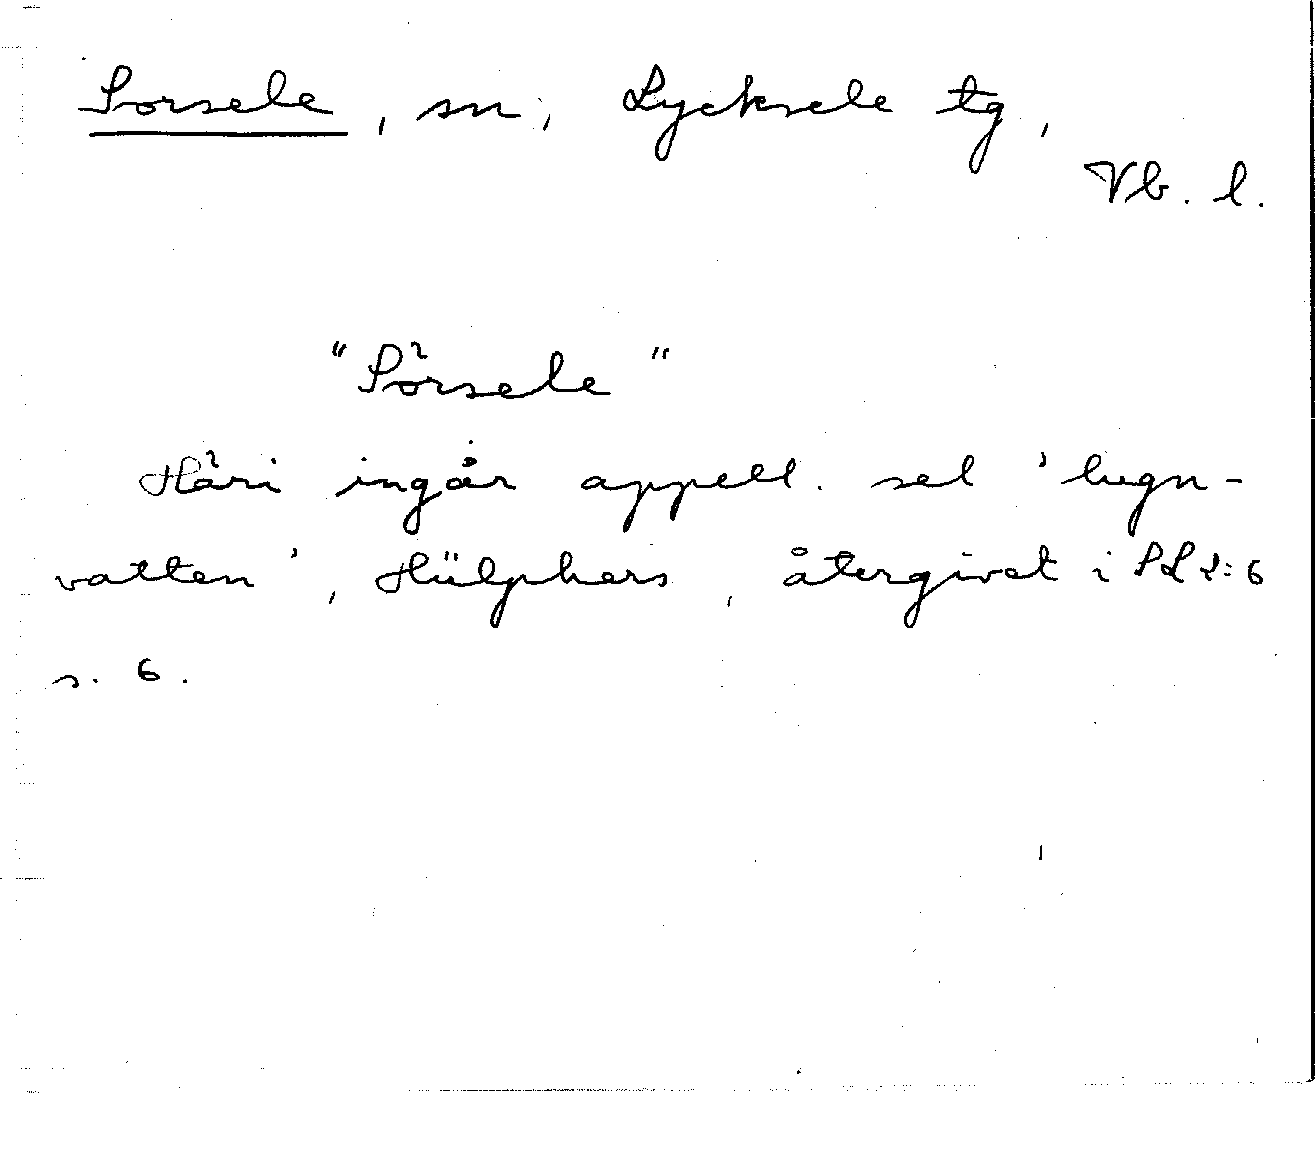 Sorsele, sn, Lycksele tg,
Vb. l.
"Sörsele"
Häri ingår appell. sel 'lugn-
vatten', Hülphers, återgivet i SL 2:6
s. 6.